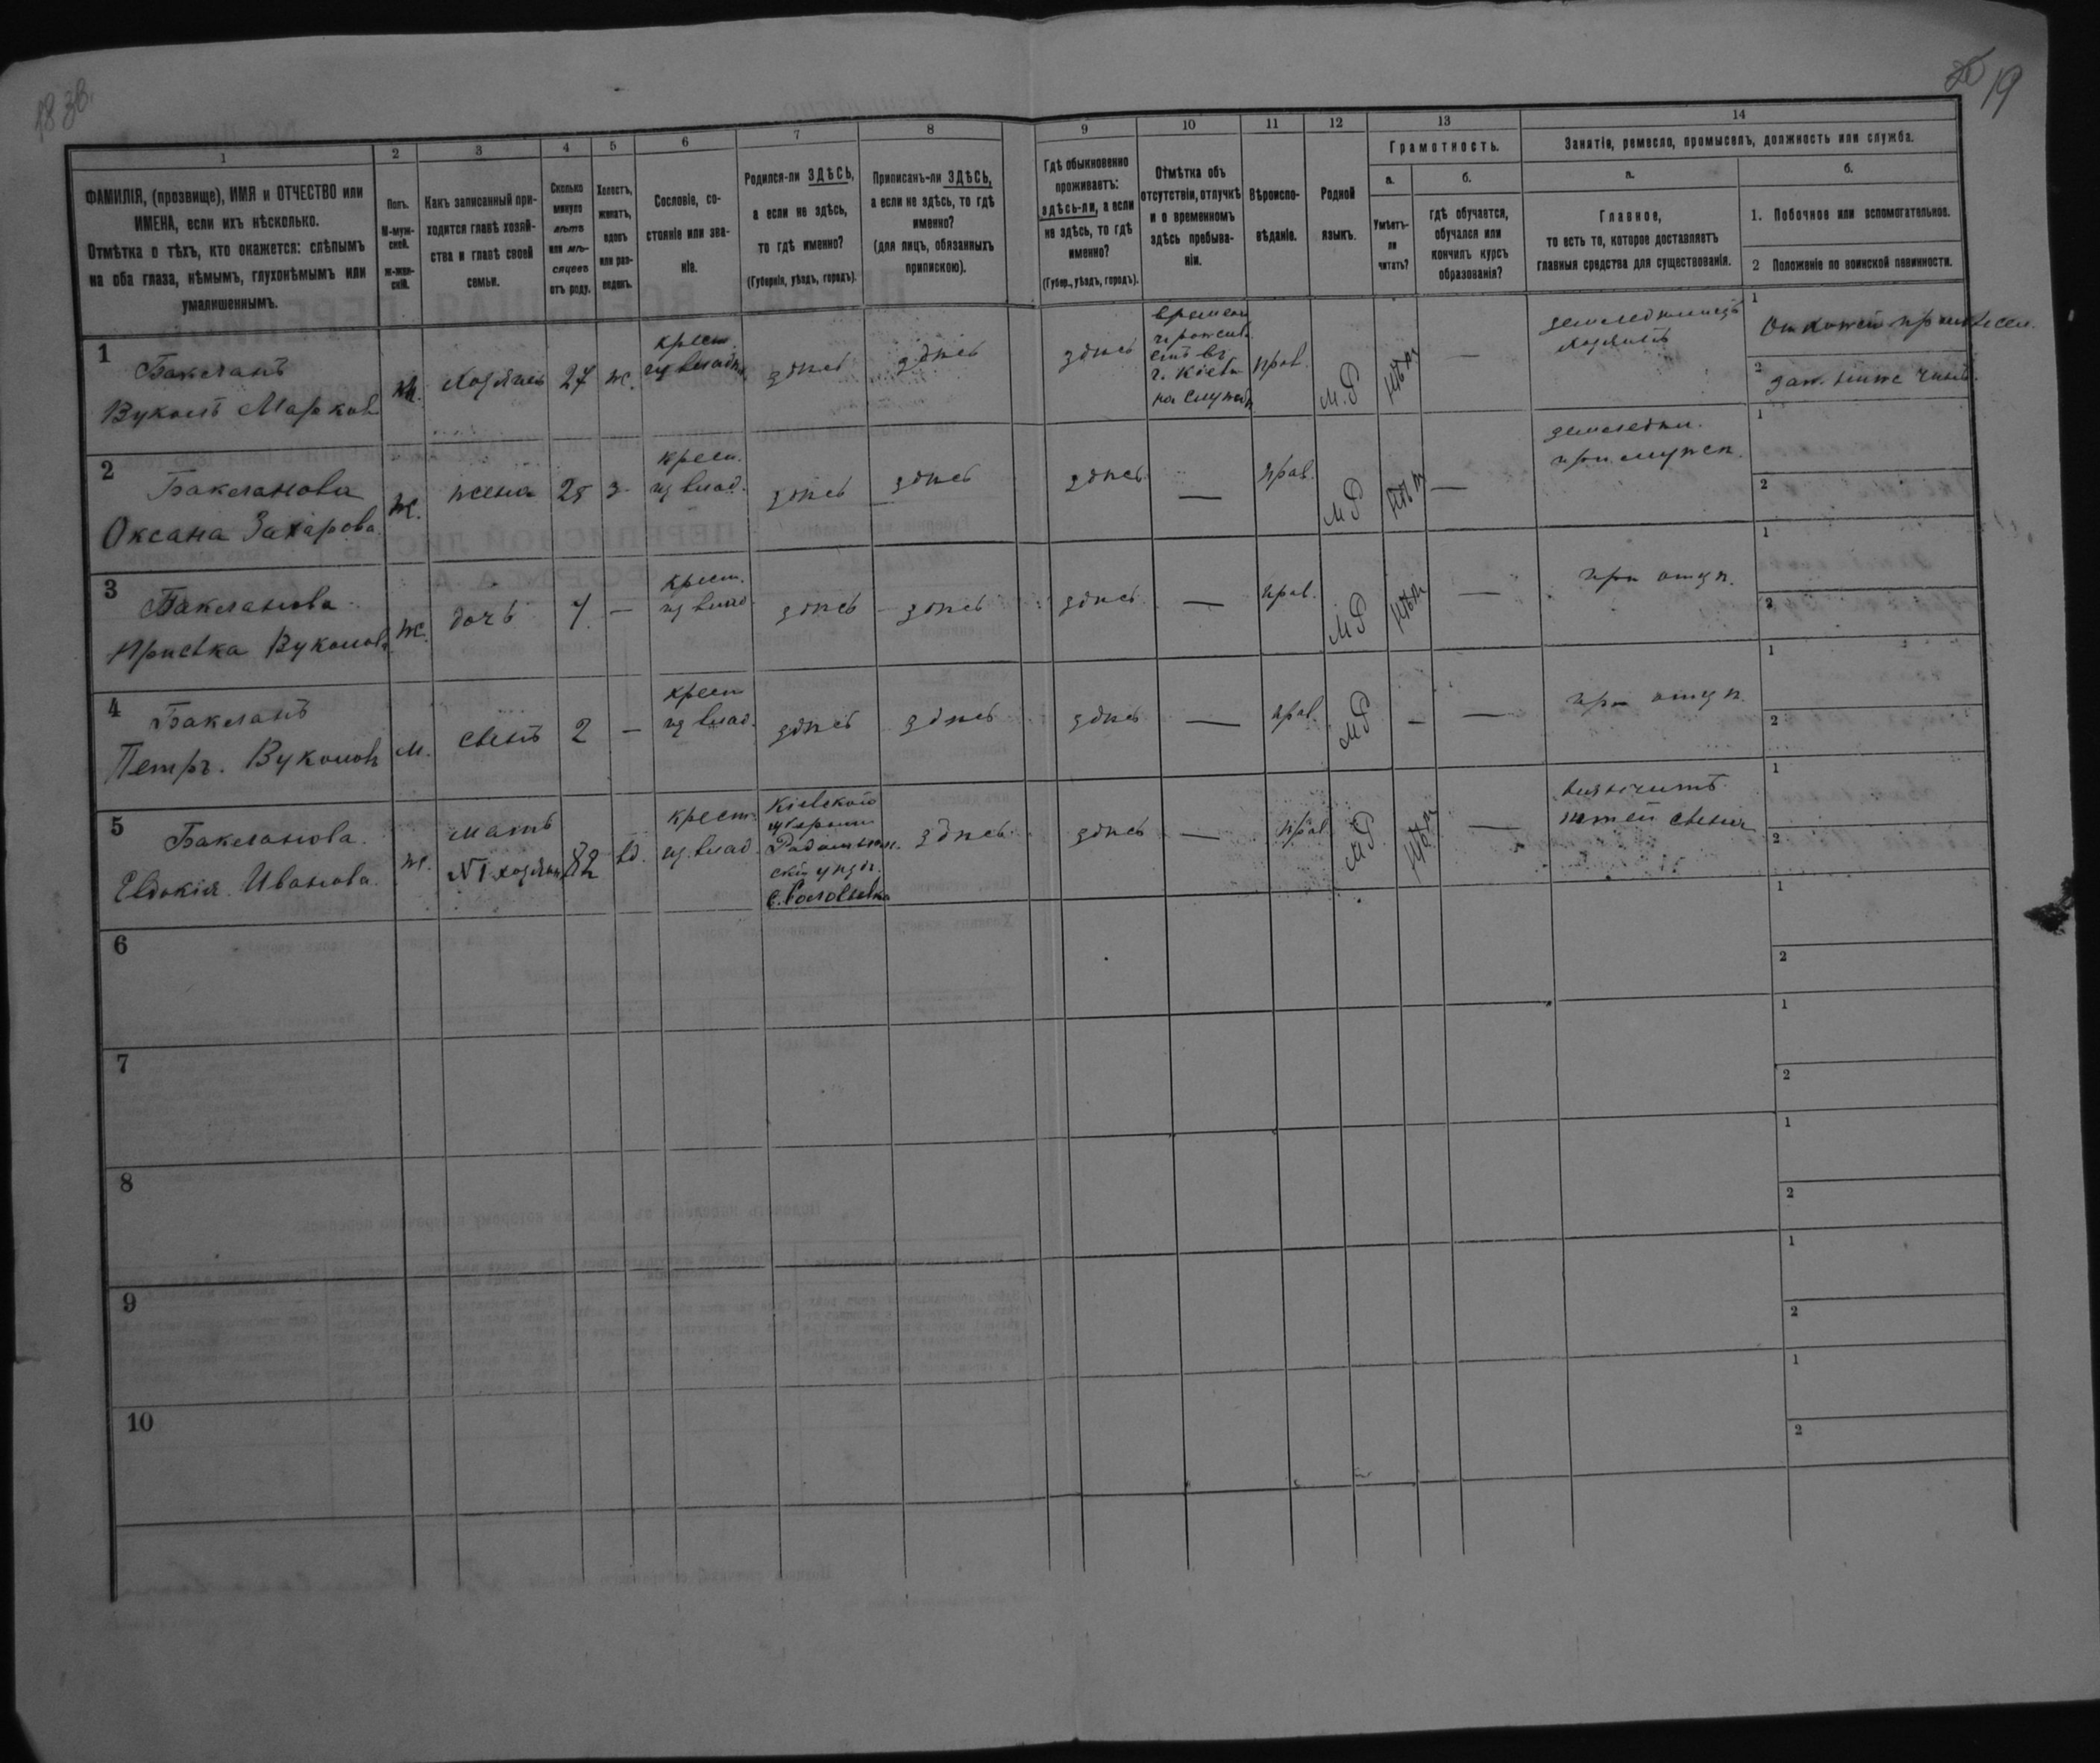 18 зв.
20 19
1
2
3
4
5
6
7
8
9
10
11
12
13
14
ФАМИЛІЯ, (прозвище), ИМЯ и ОТЧЕСТВО или
ИМЕНА, если ихъ нѣсколько.
Отмѣтка о тѣхъ, кто окажется: слѣпымъ
на оба глаза, нѣмымъ, глухонѣмымъ или
умалишеннымъ.
Полъ.
М-муж-
ской.
ж-жен-
скій.
Какъ записанный при-
ходится главѣ хозяй-
ства и главѣ своей
семьи.
Сколько
минуло
лѣтъ
или мѣ-
сяцевъ
отъ роду.
Холостъ,
женатъ,
вдовъ
или раз-
веденъ.
Сословіе, со-
стояніе или зва-
ніе.
Родился-ли ЗДѢСЬ,
а если не здѣсь,
то гдѣ именно?
(Губернія, уѣздъ, городъ).
Приписанъ-ли ЗДѢСЬ,
а если не здѣсь, то гдѣ
именно?
(для лицъ, обязанныхъ
припискою).
Гдѣ обыкновенно
проживаетъ:
здѣсь-ли, а если
не здѣсь, то гдѣ
именно?
(Губер., уѣздъ, городъ).
Отмѣтка объ
отсутствіи, отлучкѣ
и о временномъ
здѣсь пребыва-
ніи.
Вѣроиспо-
вѣданіе.
Родной
языкъ.
Грамотность.
а.
Умѣетъ-
ли
читать?
б.
гдѣ обучается,
обучался или
кончилъ курсъ
образованія?
Занятія, ремесло, промыселъ, должность или служба.
а.
Главное,
то есть то, которое доставляетъ
главныя средства для существованія.
б.
1. Побочное или вспомогательное.
2 Положеніе по воинской повинности.
1
Бакланъ
Вуколъ Марков
м.
хозяинъ
27
ж.
крест.
из владѣл
здѣсь
здѣсь
здѣсь
времен
прожив
етъ въ
г. Кіевѣ
на службѣ
прав.
М.Р
нѣт
—
земледѣлецъ
хозяинъ
1
2
зап. ниж. чинъ.
2
Бакланова
Оксана Захарова
ж.
жена
25
з.
крест.
из влад.
здѣсь
здѣсь
здѣсь
—
прав.
МР
нѣт
—
земледѣл.
при мужѣ.
1
2
3
Бакланова
Приська Вуколов
ж.
дочь
7.
—
крест.
из влад.
здѣсь
здѣсь
здѣсь
—
прав.
МР
нѣт
—
при отцѣ.
1
2
4
Бакланъ
Петръ. Вуколовъ
м.
сынъ
2
—
крест
из влад.
здѣсь
здѣсь
здѣсь
—
прав.
МР
—
—
при отцѣ.
1
2
5
Бакланова.
Евдокія Иванова.
ж.
мать
№1 хозяина
вд.
крест.
из влад.
Кіевской
губерніи
Радомысл.
скій уѣзд.
с. Соловьевка
здѣсь
здѣсь
—
прав
МР
нѣт
—
1
2
6
1
2
7
1
2
8
1
2
9
1
2
10
1
2